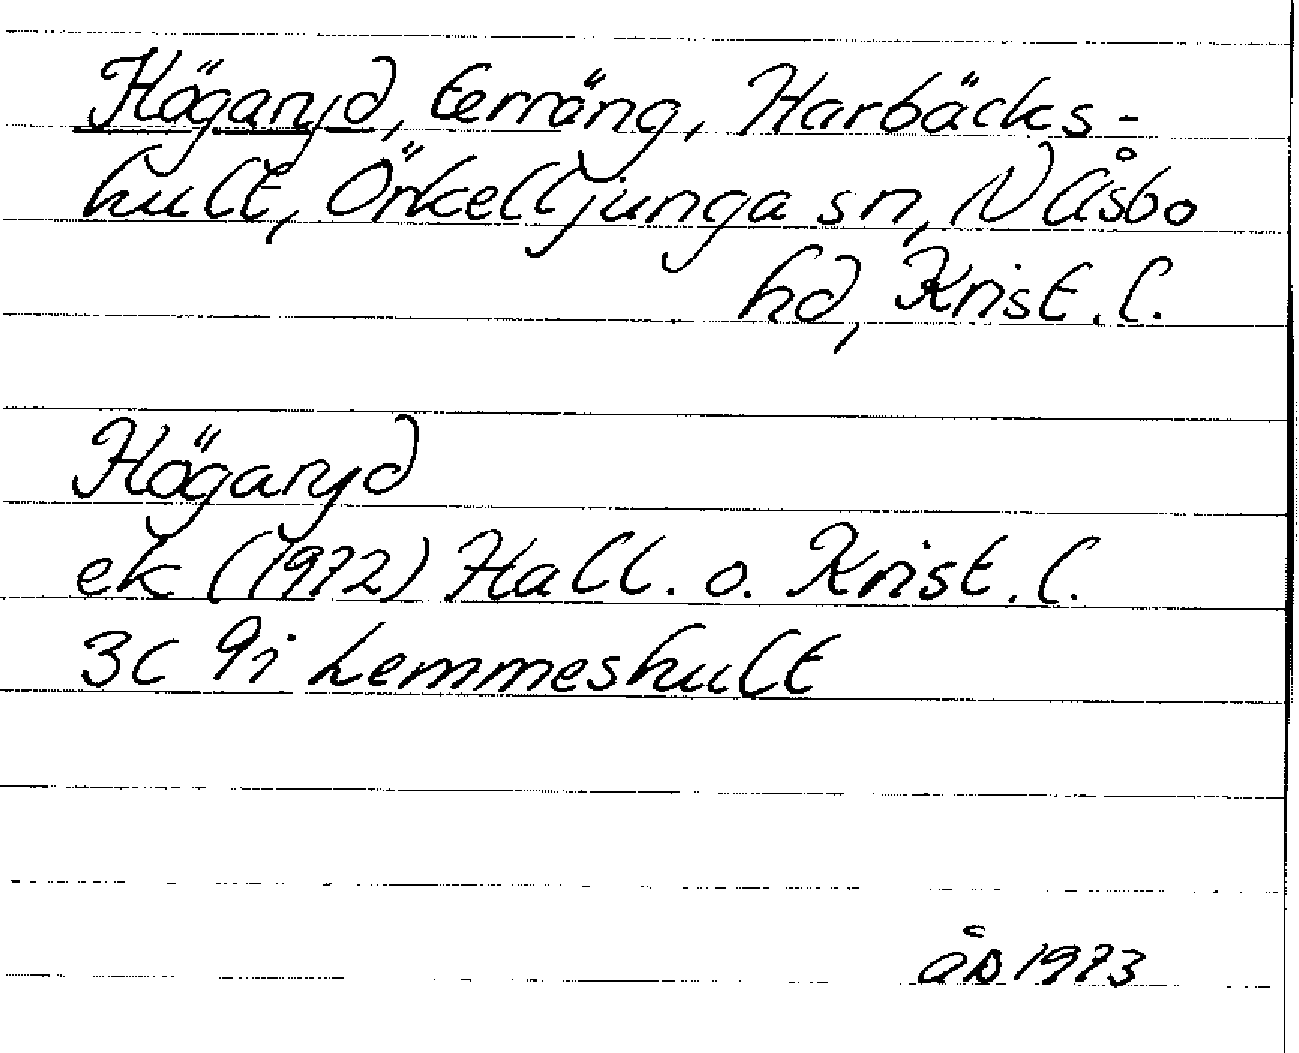 Högaryd, terräng, Harbäcks-
hult, Örkelljunga sn, N Åsbo
hd, Krist. l.
Högaryd
ek (1972) Hall. o. Krist. l.
3C 9i Lemmeshult
ÅD 1973